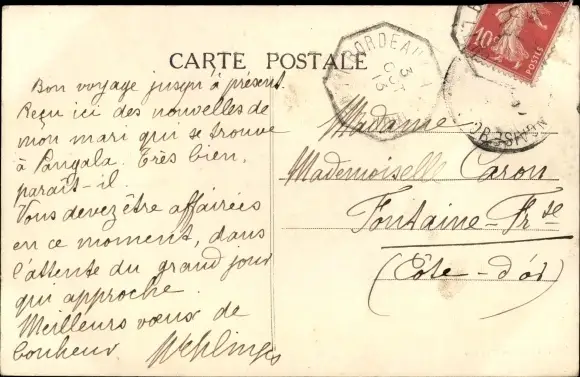 CARTE POSTALE
Bon voyage jusqu'à présent.
Reçu ici des nouvelles de
mon mari qui se trouve
à Pangala. Très bien,
paraît-il.
Vous devez être affairées
en ce moment, dans
l'attente du grand jour
qui approche.
Meilleurs vœux de
bonheur.
Madame
Mademoiselle Caron
Fontaine-Frse
(Côte-d'or)
BORDEAUX
3
OCT
13
10
POSTES